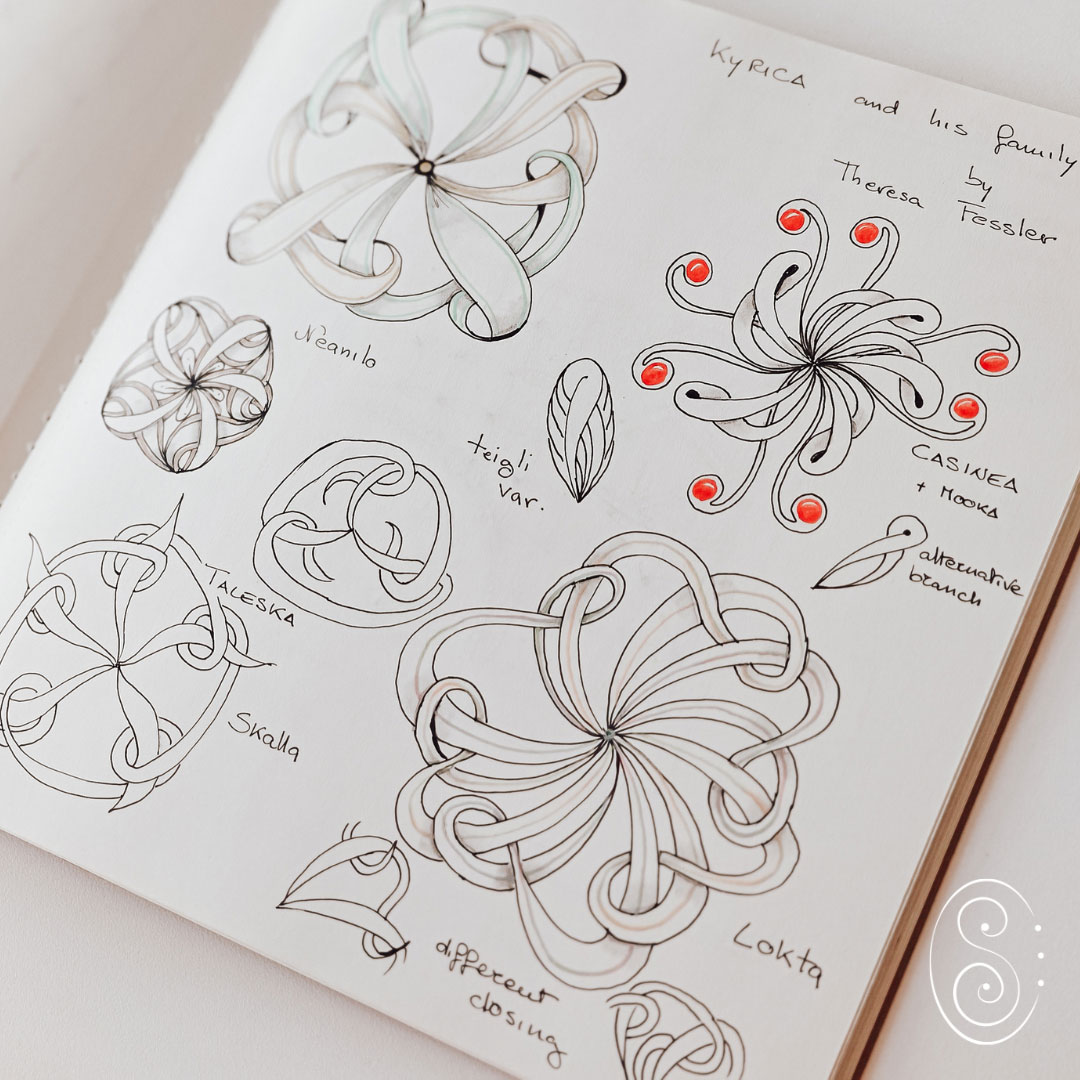 KYRICA and his family
by
Theresa Fessler
Neanilo
teigli
var.
CASINEA
+ MOOKA
alternative
branch
TALESKA
Skalla
Lokta
different
closing